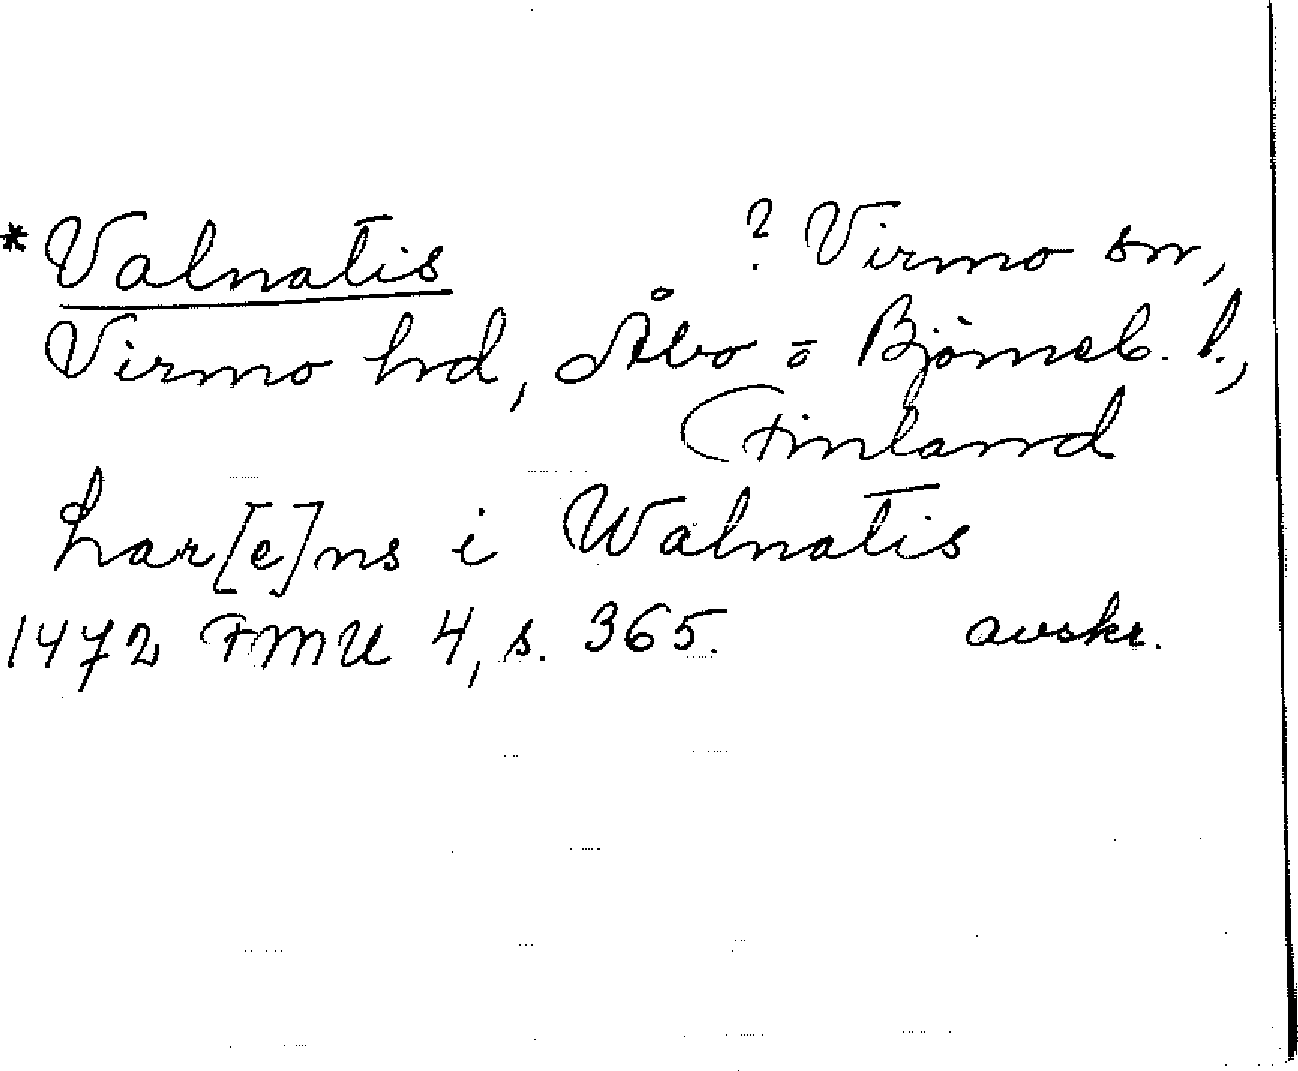 * Valnatis ? Virmo sn,
Virmo hd, Åbo o Björneb. l.,
Finland
har[e]ns i Walnatis
1472 FMU 4, s. 365. avskr.